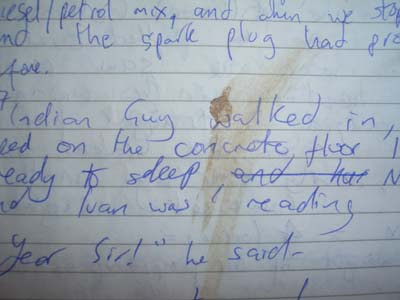 diesel/petrol mix, and when we stop
and the spark plug had gro
fore.
Indian Guy walked in,
ed on the concrete floor
eady to sleep, and her N
nd Ivan was reading
Year Sir!" he said-